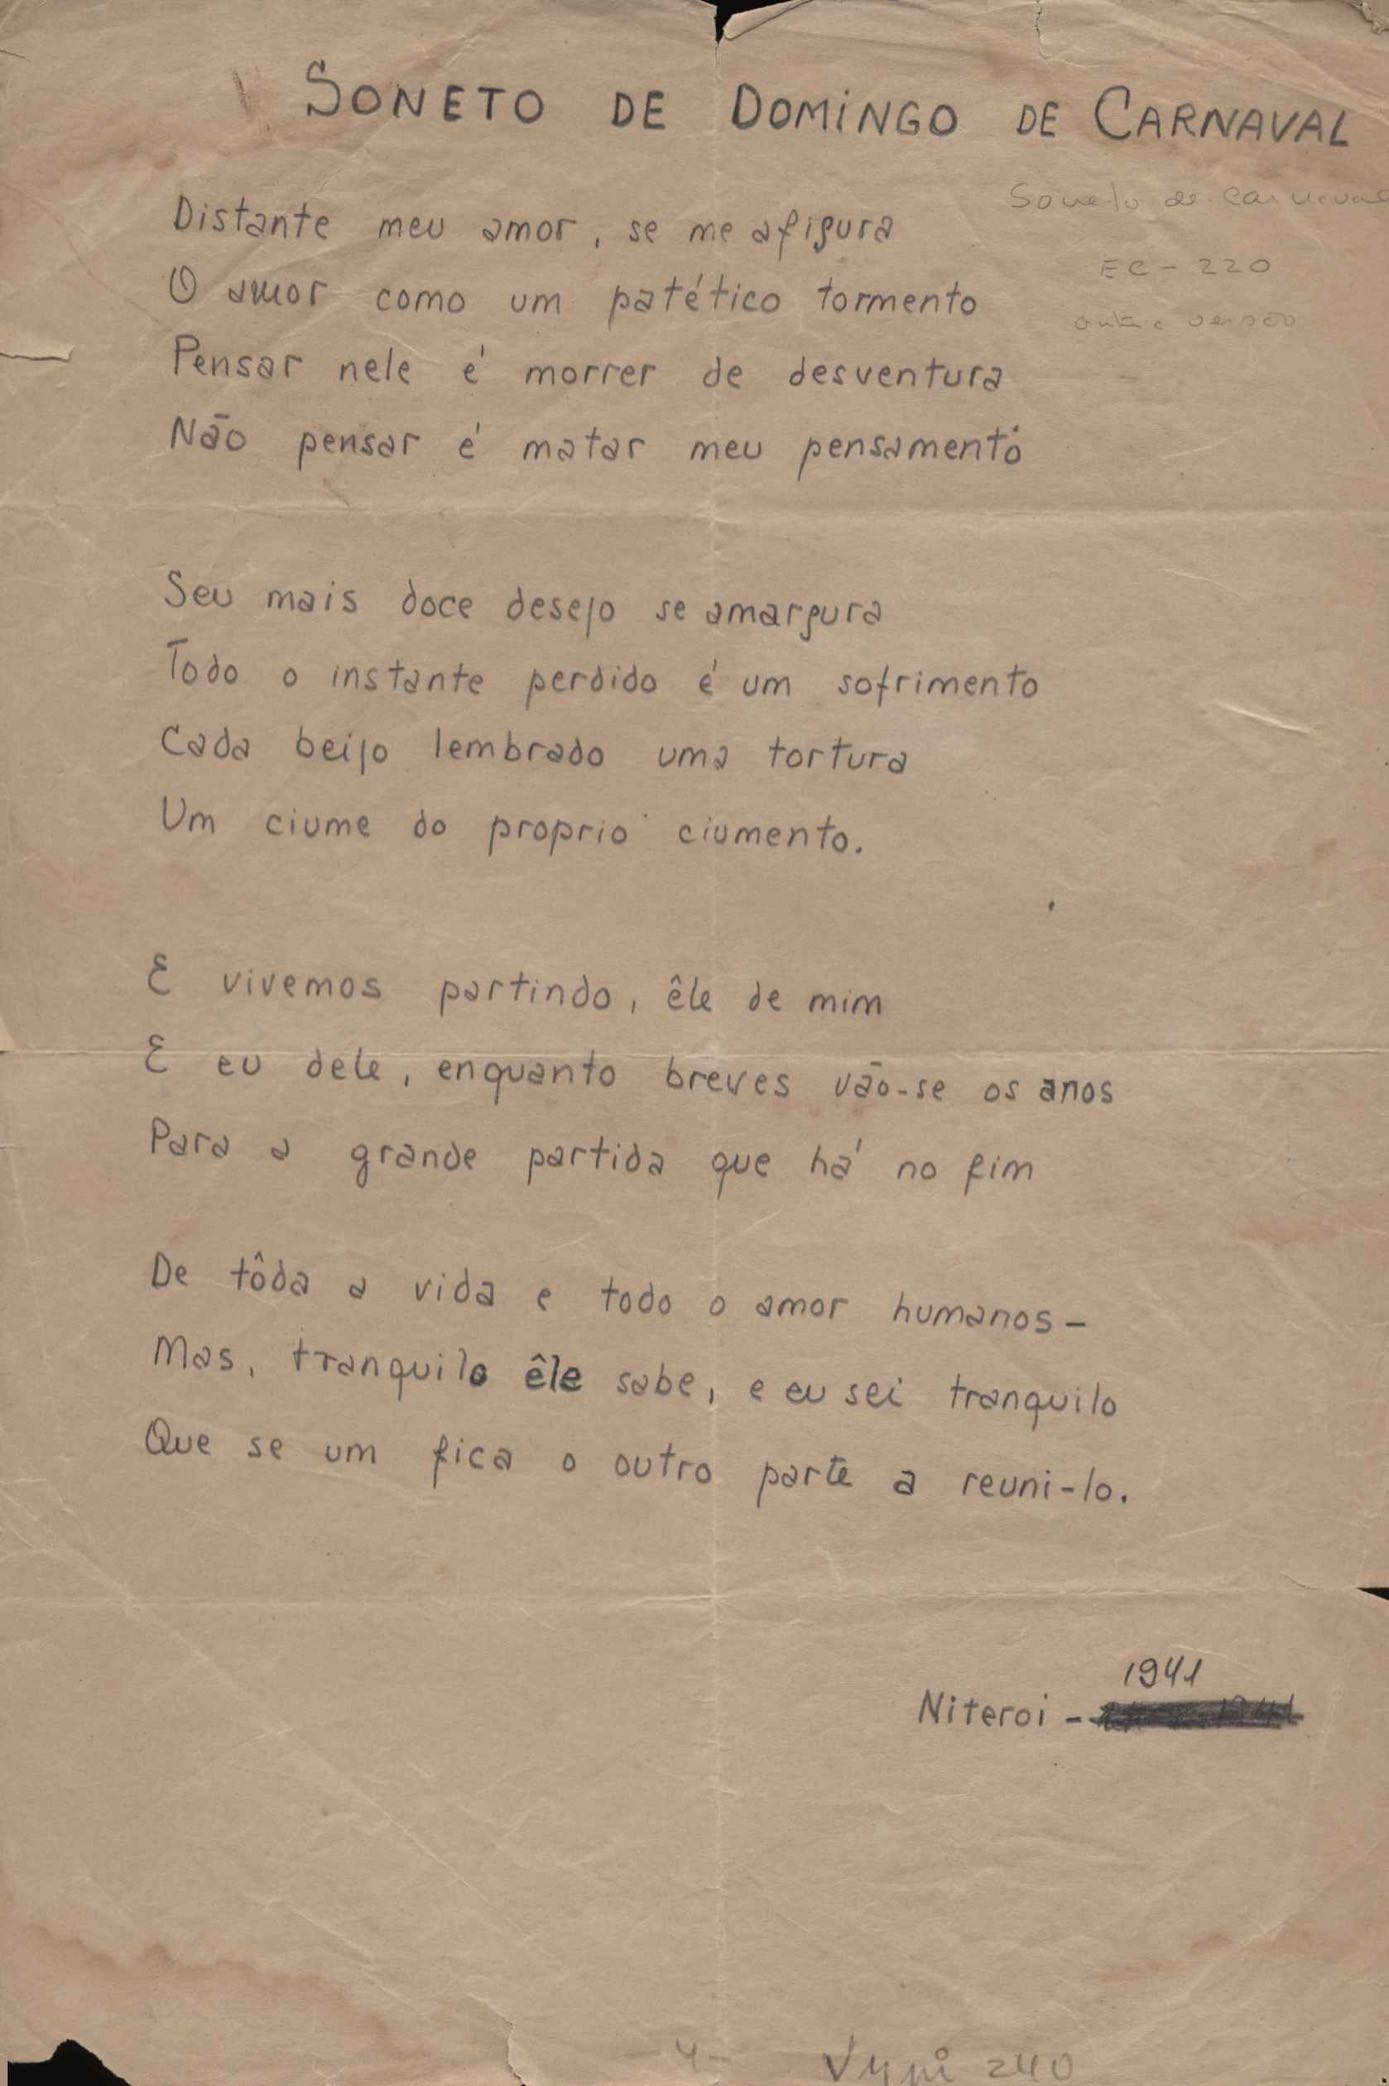 SONETO DE DOMINGO DE CARNAVAL
Soneto de Carnaval
EC - 220
outra versão
Distante meu amor, se me afigura
O amor como um patético tormento
Pensar nele é morrer de desventura
Não pensar é matar meu pensamento
Seu mais doce desejo se amargura
Todo o instante perdido é um sofrimento
Cada beijo lembrado uma tortura
Um ciume do proprio ciumento.
E vivemos partindo, êle de mim
E eu dele, enquanto breves vão-se os anos
Para a grande partida que há no fim
De tôda a vida e todo o amor humanos -
Mas, tranquilo êle sabe, e eu sei tranquilo
Que se um fica o outro parte a reuni-lo.
1941
Niteroi -
- 4 -
240